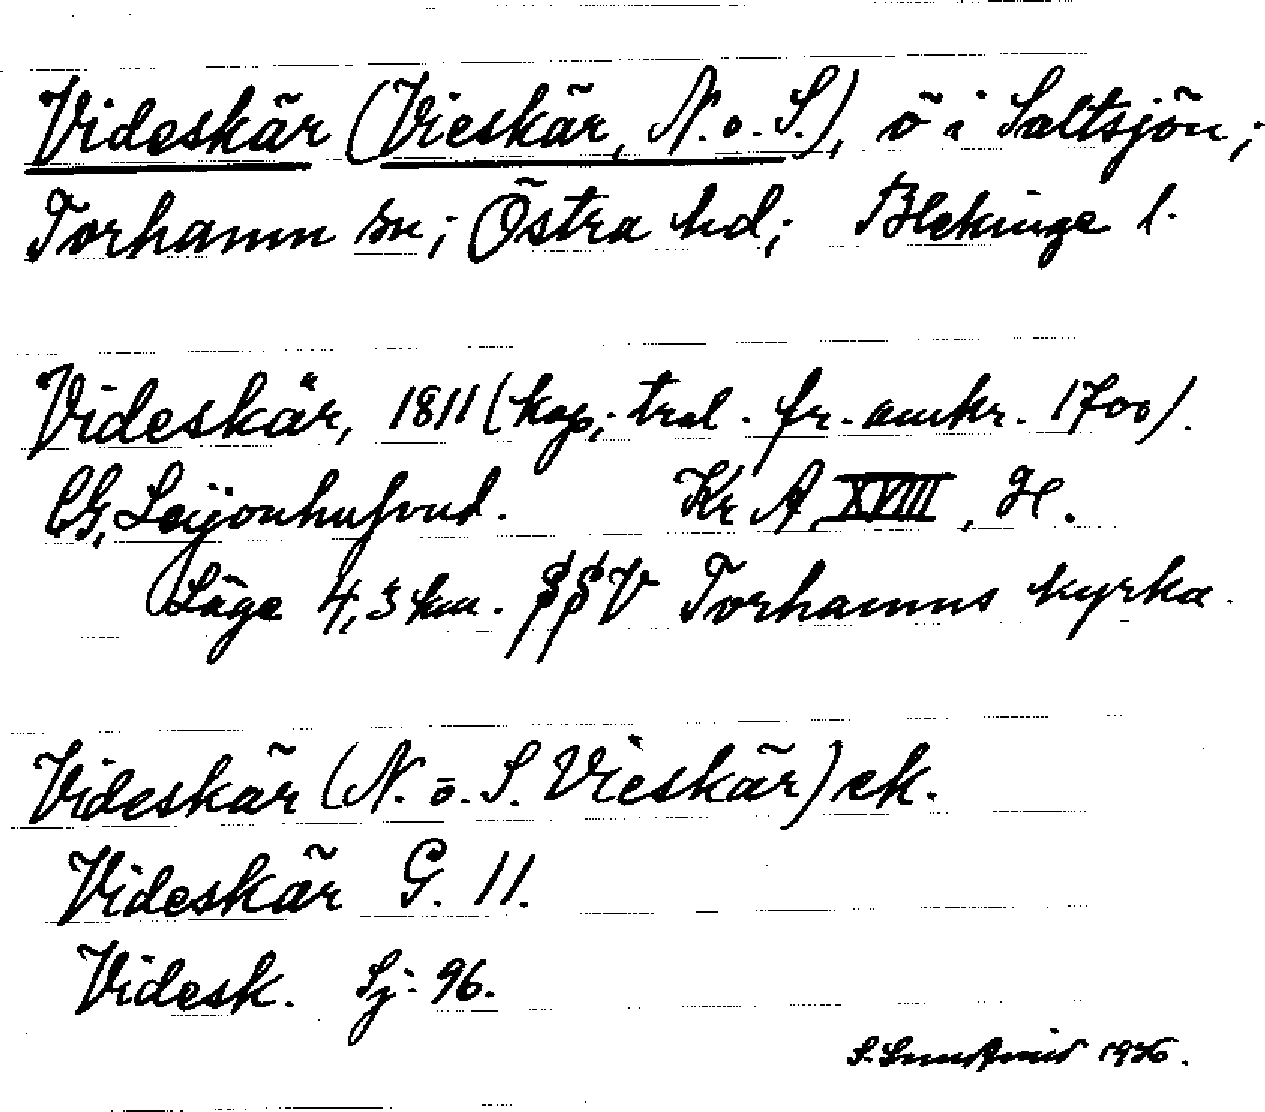 Videskär (Vieskär, N. o. S.), ö i Saltsjön;
Torhamn sn; Östra hd; Blekinge l.
Videskär, 1811 (kop; trol. fr. omkr. 1700).
CG, Leijonhufvud. Kr A, XVIII, H.
Läge 4,3 km. SSV Torhamns kyrka.
Videskär (N. o. S. Vieskär) ek.
Videskär G. 11.
Videsk. Sj. 96.
S. 1936.